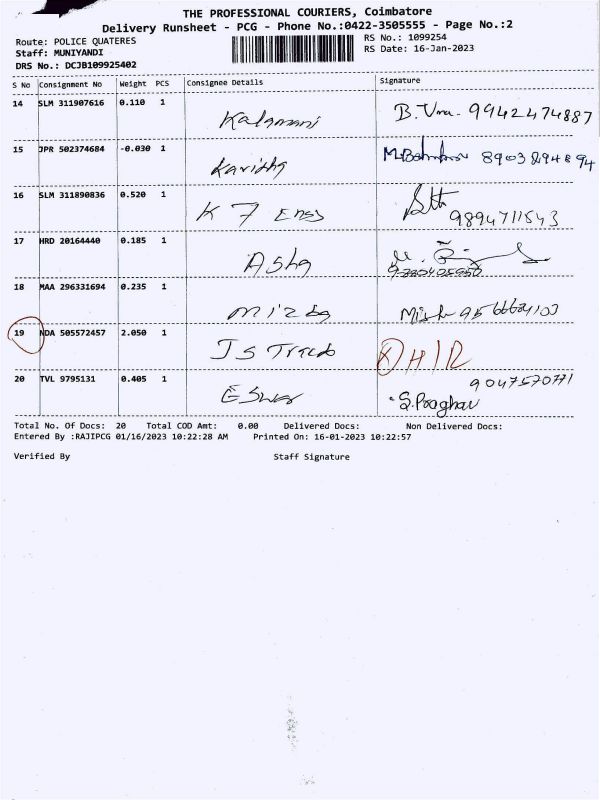 THE PROFESSIONAL COURIERS, Coimbatore
Delivery Runsheet - PCG - Phone No.:0422-3505555 - Page No.:2
Route: POLICE QUATERES
RS No.: 1099254
Staff: MUNIYANDI
RS Date: 16-Jan-2023
DRS No.: DCJB109925402
S No Consignment No Weight PCS Consignee Details Signature
14 SLM 311907616 0.110 1 Kalamani B. Uma. 9942474887
15 JPR 502374684 -0.030 1
16 SLM 311890836 0.520 1 K 7 Engs 9894711543
17 HRD 20164440 0.185 1 Asha
18 MAA 296331694 0.235 1
19 NDA 505572457 2.050 1 JS
20 TVL 9795131 0.405 1 Eswar
Total No. Of Docs: 20 Total COD Amt: 0.00 Delivered Docs: Non Delivered Docs:
Entered By :RAJIPCG 01/16/2023 10:22:28 AM Printed On: 16-01-2023 10:22:57
Verified By Staff Signature